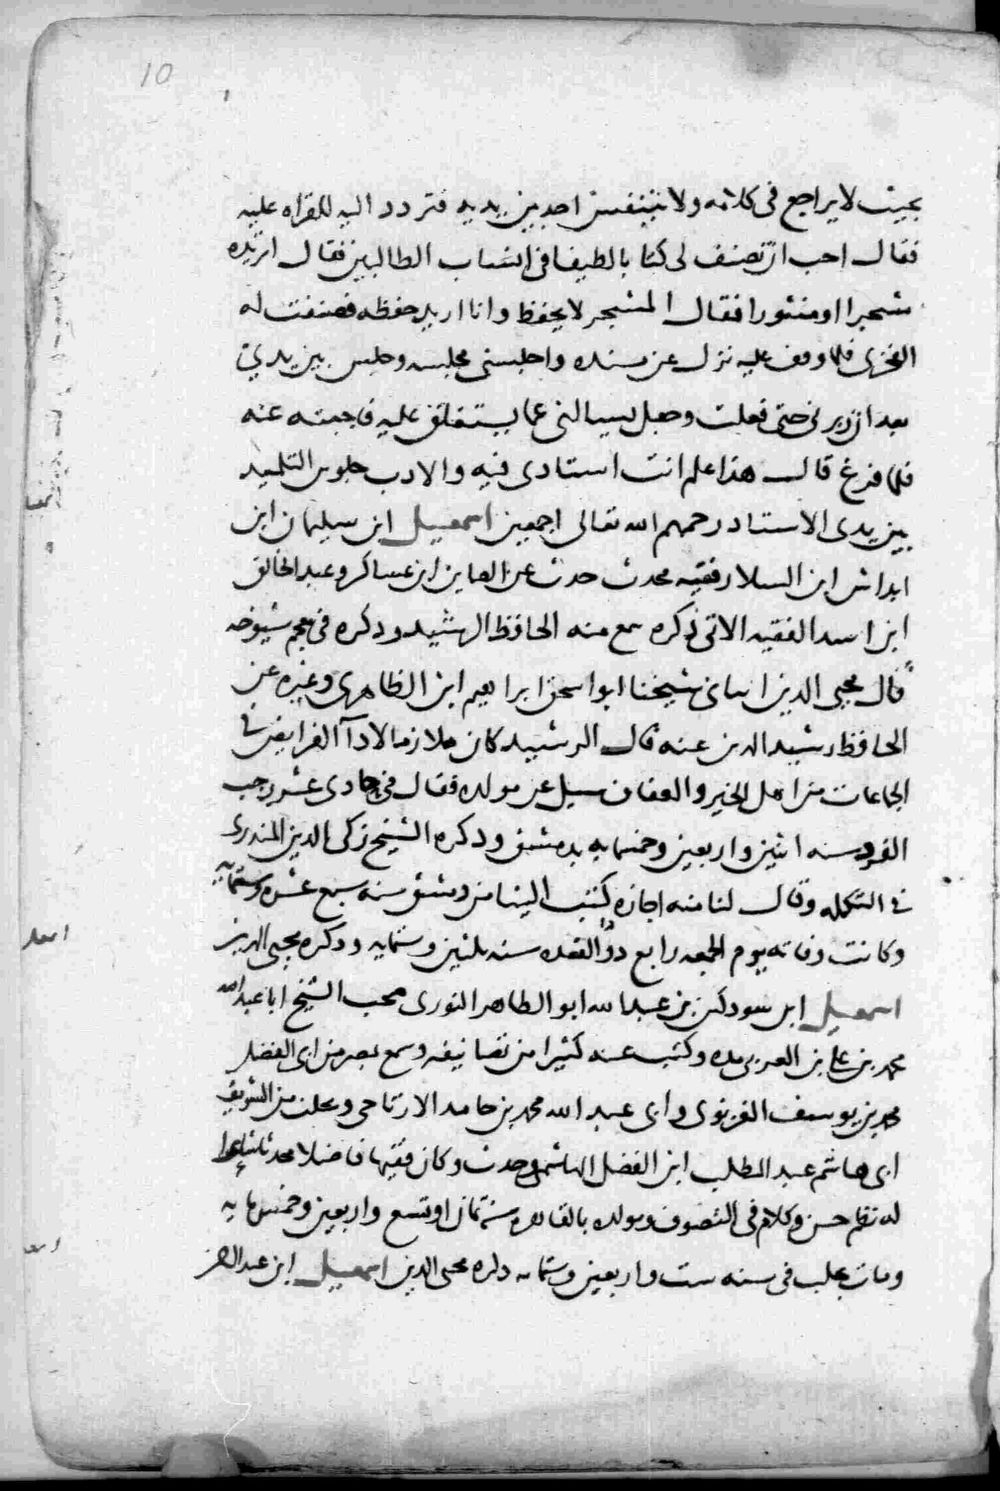 10
بحيث لا يراجع في كلامه ولا يتنفس احد بين يديه فتردد اليه للقراه عليه
فقال احب ان تصنف لي كتابا لطيفا في انساب الطالبين فقال اتريده
مشجرا او منثورا فقال المشجر لا يحفظ وانا اريد حفظه فصنفت له
الفخري فلما وقف عليه نزل عن مسنده واجلسني مجلسه وجلس بين يدي
بعد ان حتى فعلت وجعل يسالني عما يستغلق عليه فاجبته عنه
فلما فرغ قال هذا علم انت استادي فيه والادب جلوس التلميد
بين يدي الاستاد رحمهم الله تعالى اجمعين اسمعيل ابن سليمان ابن
ايداش ابن السلار فقيه محدث حدث عن الصاين ابن عساكر وعبد الخالق
ابن اسد الفقيه الاتي ذكره سمع منه الحافظ الرشيد ودكره في معجم شيوخه
قال محيي الدين انباني شيخنا ابو اسحق ابراهيم ابن الظاهري وغيره عن
الحافظ رشيد الدين عنه قال الرشيد كان ملازما لادآ الفرايض في
الجماعات من اهل الخير والعفاف سيل عن مولده فقال في حادي عشر رجب
الفرد سنه اثنين واربعين وخمسمايه بدمشق ودكره الشيخ زكي الدين المندري
في التكمله وقال لنا منه اجازه كتب الينا من دمشق سنه سبع عشره وستمايه
وكانت وفاته يوم الجمعه رابع دو القعده سنه ثلثين وستمايه ودكره محيي الدين
اسمعيل ابن سودكين بن عبد الله ابو الطاهر النوري صحب الشيخ ابا عبد الله
محمد بن علي بن العربي مده وكتب عنه كثيرا من تصانيفه وسمع بمصر من ابي الفضل
محمد بن يوسف الغزنوي وابي عبد الله محمد بن حامد الارتاحي وبحلب من الشريف
ابي هاشم عبد المطلب ابن الفضل الهاشمي وحدث وكان فقيها فاضلا محدثا شاعرا
له نظم حسن وكلام في التصوف ومولده بالقاهره سنه ثمان او تسع واربعين وخمسمايه
ومات بحلب في سنه ست واربعين وستمايه دكره محيي الدين اسمعيل ابن عبد